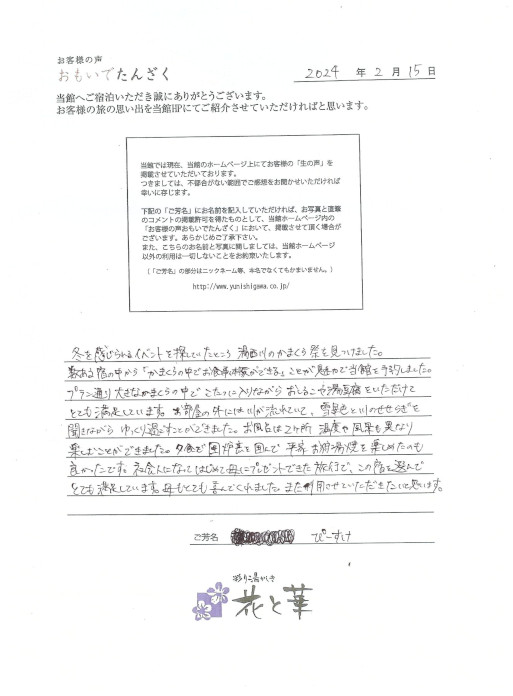 お客様の声
おもいでたんざく
2024 年 2 月 15 日
当館へご宿泊いただき誠にありがとうございます。
お客様の旅の思い出を当館HPにてご紹介させていただければと思います。
当館では現在、当館のホームページ上にてお客様の「生の声」を
掲載させていただいております。
つきましては、不都合がない範囲でご感想をお聞かせいただければ
幸いに存じます。
下記の「ご芳名」にお名前を記入していただければ、お写真と直筆
のコメントの掲載許可を得たものとして、当館ホームページ内の
「お客様の声おもいでたんざく」において、掲載させて頂く場合が
ございます。あらかじめご了承下さい。
また、こちらのお名前と写真に関しましては、当館ホームページ
以外の利用は一切しないことをお約束いたします。
(「ご芳名」の部分はニックネーム等、本名でなくてもかまいません。)
http://www.yunishigawa.co.jp/
冬を感じられるイベントを探していたところ 湯西川のかまくら祭を見つけました。
数ある宿の中から「かまくらの中でお食事体験ができる」ことが魅力で当館を予約しました。
プラン通り大きなかまくらの中でこたつに入りながら おしるこや湯豆腐をいただけて
とても満足しています。お部屋の外には川が流れていて、雪景色と川のせせらぎを
聞きながら ゆっくり過ごすことができました。お風呂は2ヶ所 温度や風景も異なり
楽しむことができました。夕食で囲炉裏を囲んで 平家お狩場焼を楽しめたのも
良かったです。社会人になってはじめて母にプレゼントできた旅行で、この宿を選んで
とても満足しています。母もとても喜んでくれました。また利用させていただきたいと思います。
ご芳名 ぴーすけ
彩り湯かしき
花と華